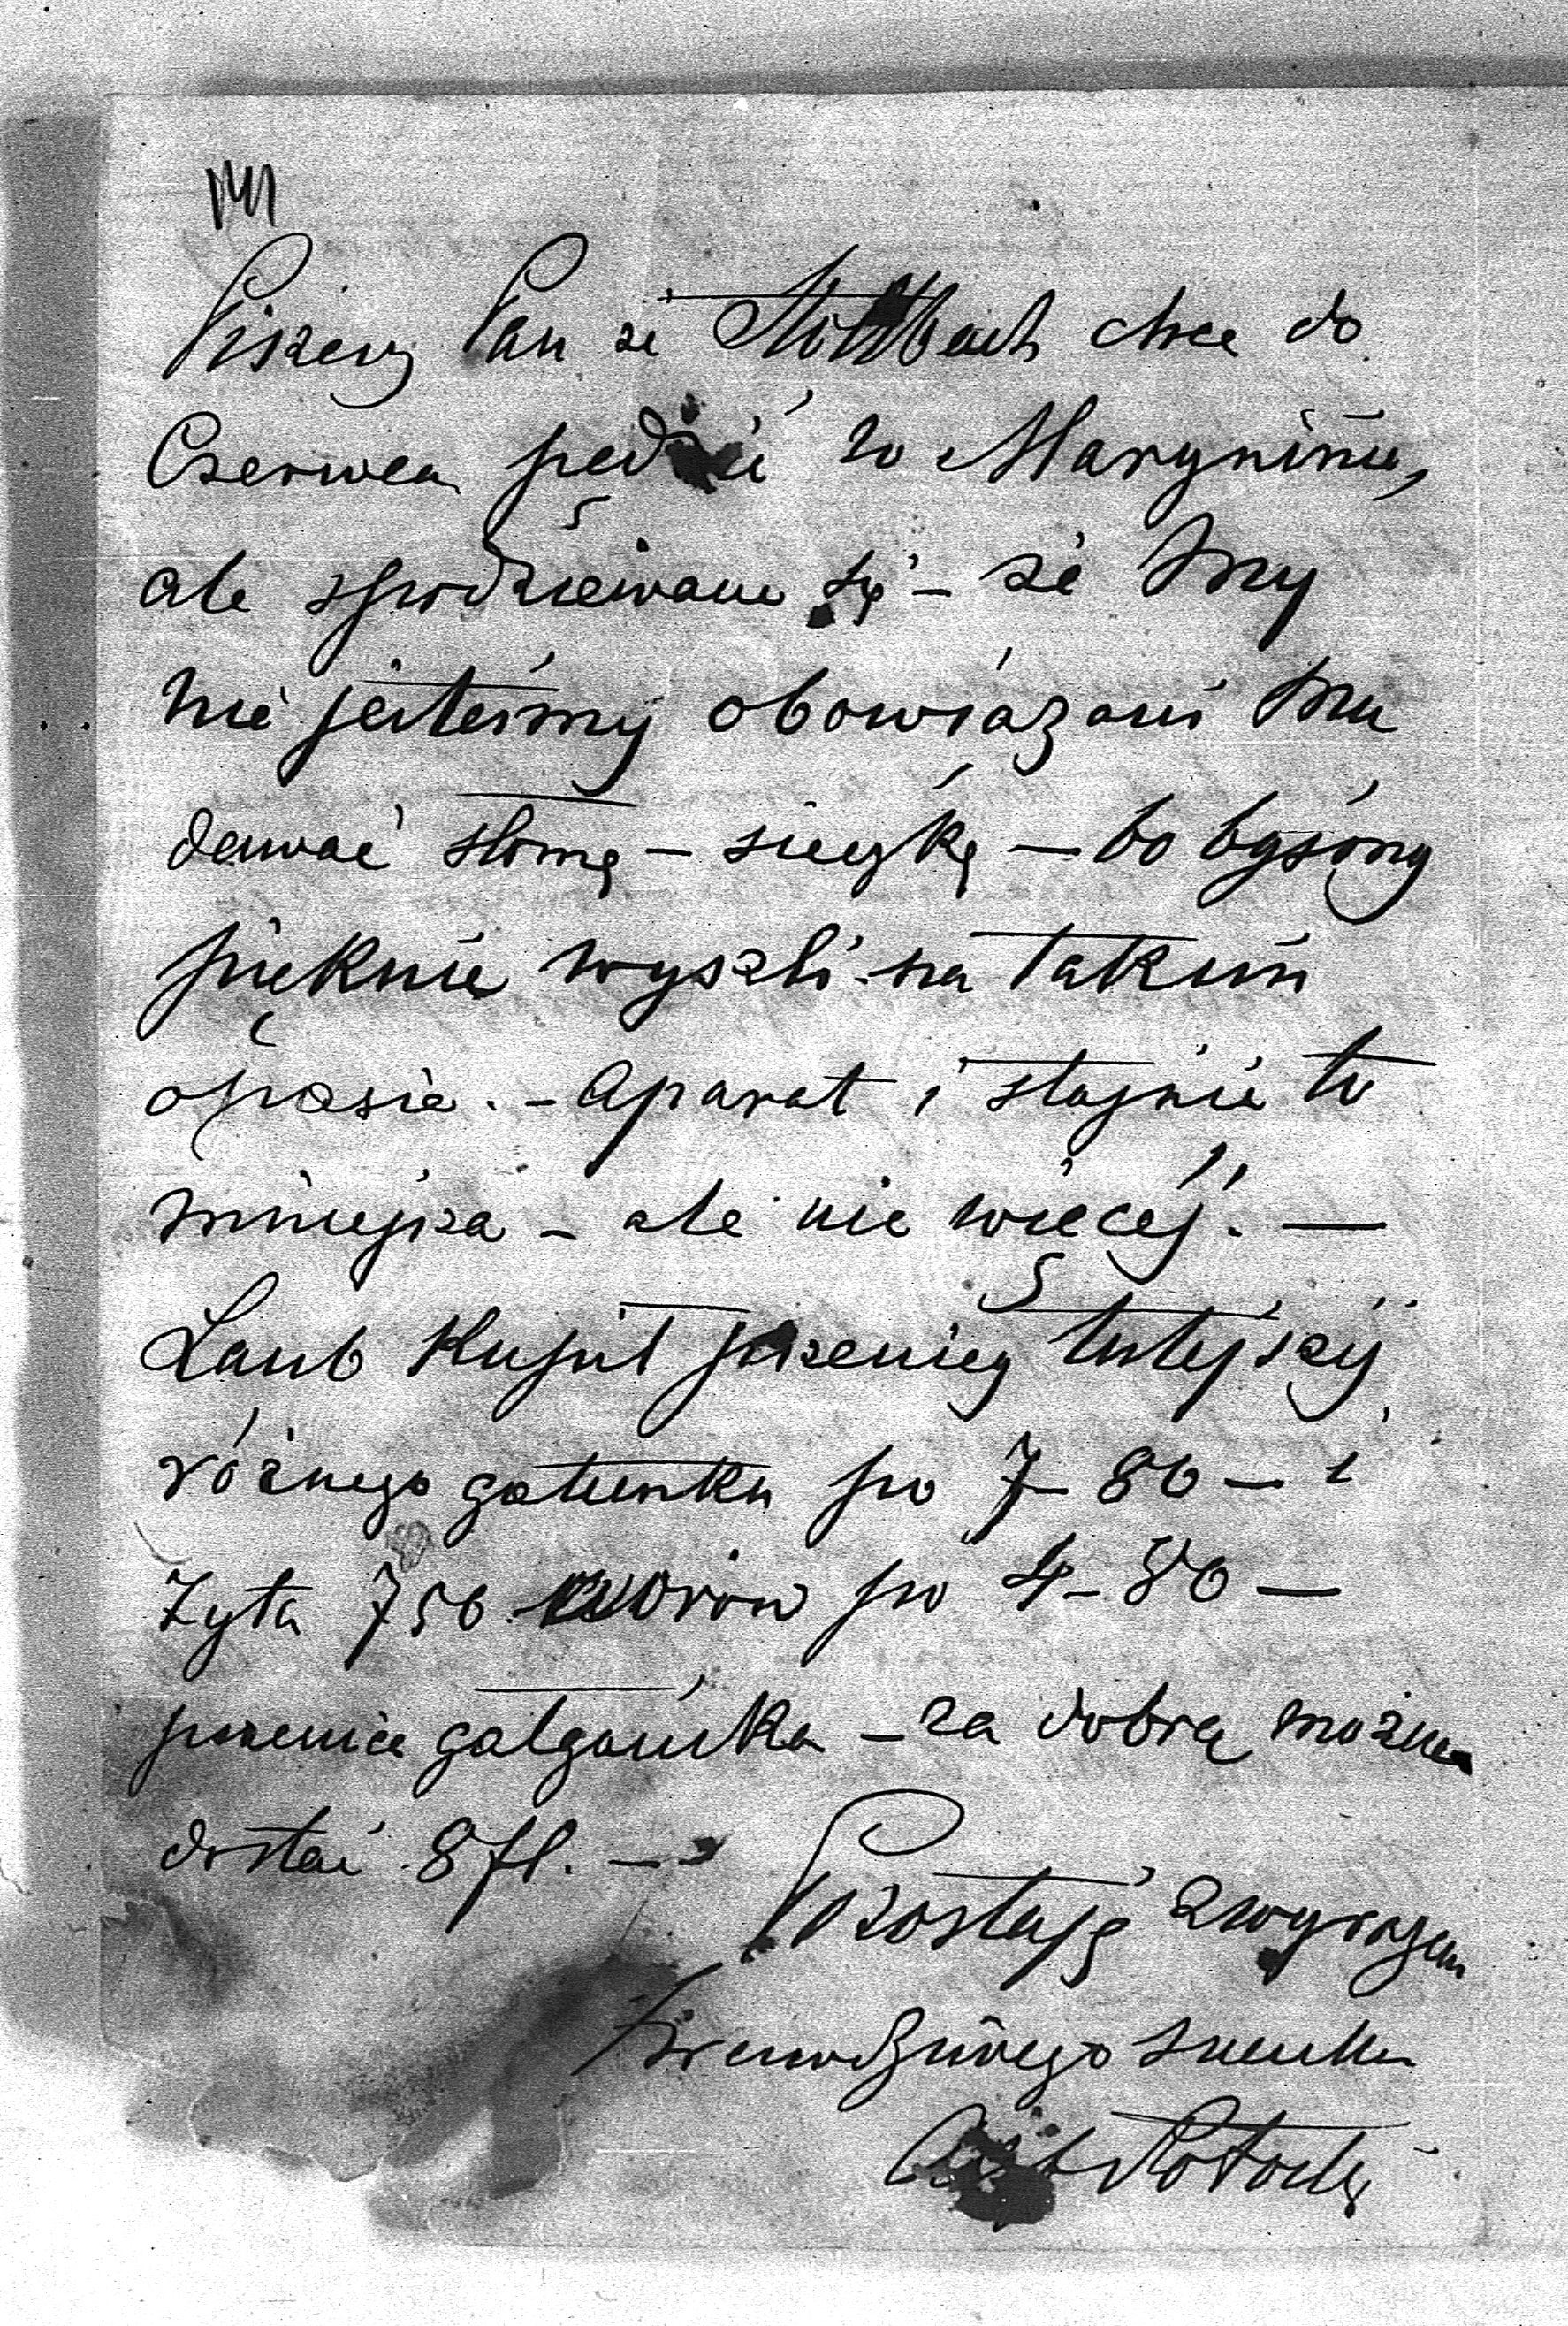 Piszesz Pan że chce do
Czerwca pędzić w Maryninie,
ale spodziewam się – że my
nie jesteśmy obowiązani mu
dawać słomę – sieczkę – bo byśmy
pięknie wyszli na takim
opasie. – Aparat i stajnie to
mniejsza – ale nie więcéj. —
Laub kupił pszenicę tutejszą
różnego gatunku po 7–80 – i
żyta 750 po 4–80 —
pszenica galganka – za dobrą można
dostać 8 fl. —
Pozostaję z wyrazem
prawdziwego szacunku
Potocki